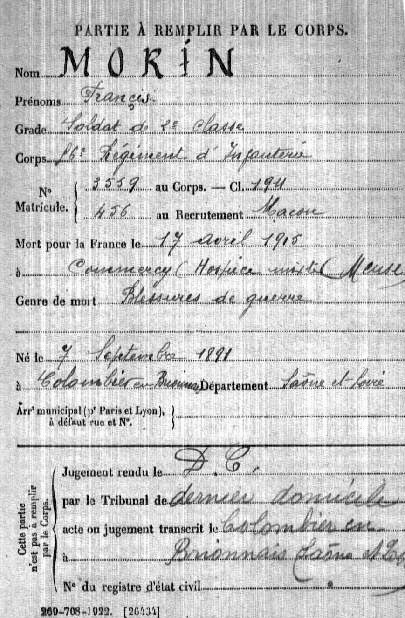 PARTIE À REMPLIR PAR LE CORPS.
Nom MORIN
Prénoms François
Grade Soldat de 2e classe
Corps 56e Régiment d'Infanterie
N° Matricule. 3559 au Corps. — Cl. 1911
456 au Recrutement Macon
Mort pour la France le 17 avril 1915
à Commercy (Hospice mixte) (Meuse
Genre de mort Blessures de guerre
Né le 7 Septembre 1891
à Colombier en Brionnais Département Saône et Loire
Arrt municipal (pr Paris et Lyon),
à défaut rue et N°.
Cette partie n'est pas à remplir par le Corps.
Jugement rendu le D.C.
par le Tribunal de dernier domicile
acte ou jugement transcrit le Colombier en
à Brionnais Saône et
N° du registre d'état civil
269-708-1922. [26434]